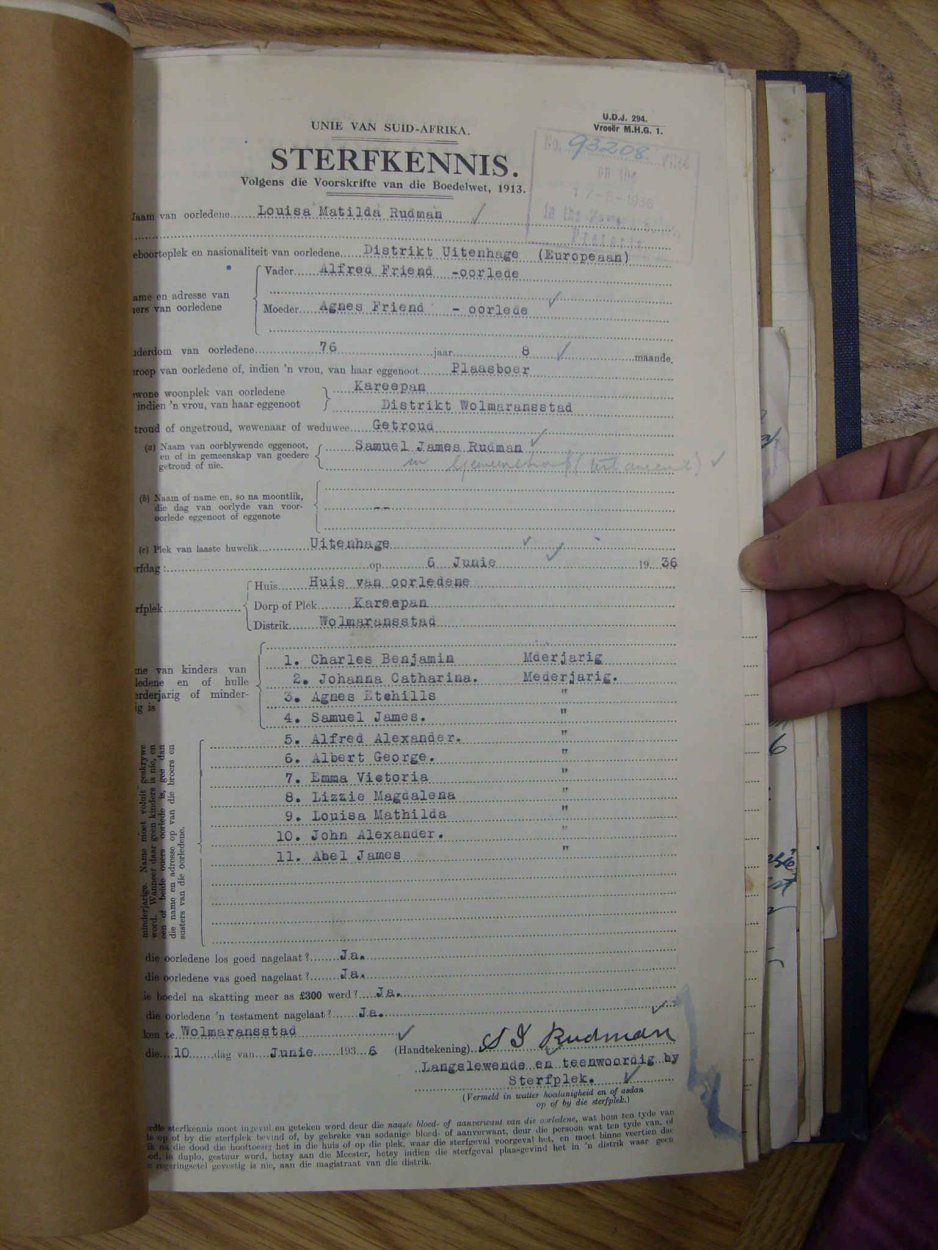 U.D.J. 294.
Vroeër M.H.G. 1.
UNIE VAN SUID-AFRIKA.
STERFKENNIS.
Volgens die Voorskrifte van die Boedelwet, 1913.
No. 93208 Filed
on the
17-6-1936
in the
Pretoria
aam van oorledene Louisa Matilda Rudman
eboorteplek en nasionaliteit van oorledene Distrikt Uitenhage (Europeaan)
ame en adresse van
ers van oorledene
Vader Alfred Friend -oorlede
Moeder Agnes Friend - oorlede
derdom van oorledene 76 jaar 8 maande.
roep van oorledene of, indien 'n vrou, van haar eggenoot Plaasboer
wone woonplek van oorledene
indien 'n vrou, van haar eggenoot
Kareepan
Distrikt Wolmaransstad
troud of ongetroud, wewenaar of weduwee Getroud
(a) Naam van oorblywende eggenoot,
en of in gemeenskap van goedere
getroud of nie.
Samuel James Rudman
in
(b) Naam of name en, so na moontlik,
die dag van oorlyde van voor-
oorlede eggenoot of eggenote
--
(c) Plek van laaste huwelik Uitenhage
rfdag: op 6 Junie 1936
rfplek
Huis Huis van oorledene
Dorp of Plek Kareepan
Distrik Wolmaransstad
me van kinders van
ledene en of hulle
erderjarig of minder-
ig is
1. Charles Benjamin Mderjarig
2. Johanna Catharina. Mederjarig.
3. Agnes Etchills "
4. Samuel James. "
5. Alfred Alexander. "
6. Albert George. "
7. Emma Victoria "
8. Lizzie Magdalena "
9. Louisa Mathilda "
10. John Alexander. "
11. Abel James "
minderjarige. Name moet voluit geskrywe
word. Wanneer daar geen kinders is nie, en
een of beide ouers oorlede is, gee dan
die name en adresse op van die broers en
susters van die oorledene.
die oorledene los goed nagelaat? Ja.
die oorledene vas goed nagelaat? Ja.
ie boedel na skatting meer as £300 werd? Ja.
die oorledene 'n testament nagelaat? Ja.
ken te Wolmaransstad
die 10 dag van Junie 1936 (Handtekening) S J Rudman
Langslewende en teenwoordig by
Sterfplek.
(Vermeld in watter hoedanigheid en of aldan
op of by die sterfplek.)
sterfkennis moet ingevul en geteken word deur die naaste bloed- of aanverwant van die oorledene, wat hom ten tyde van
op of by die sterfplek bevind of, by gebreke van sodanige bloed- of aanverwant, deur die persoon wat ten tyde van, of
k na die dood die hooftoesig het in die huis of op die plek, waar die sterfgeval voorgeval het, en moet binne veertien dae
ed, in duplo, gestuur word, hetsy aan die Meester, hetsy indien die sterfgeval plaasgevind het in 'n distrik waar geen
regeringsetel gevestig is nie, aan die magistraat van die distrik.